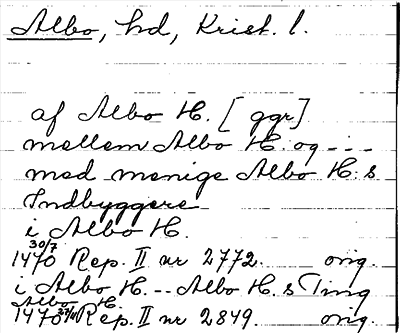 Albo, hd, Krist. l.
af Albo H. [ ggr]
mellem Albo H. og ---
med menige Albo H.s
Indbyggere
i Albo H.
1470 30/7 Rep. II nr 2772. orig.
i Albo H. -- Albo H.s Ting
Albo H.
1470 Rep. II nr 2849. orig.